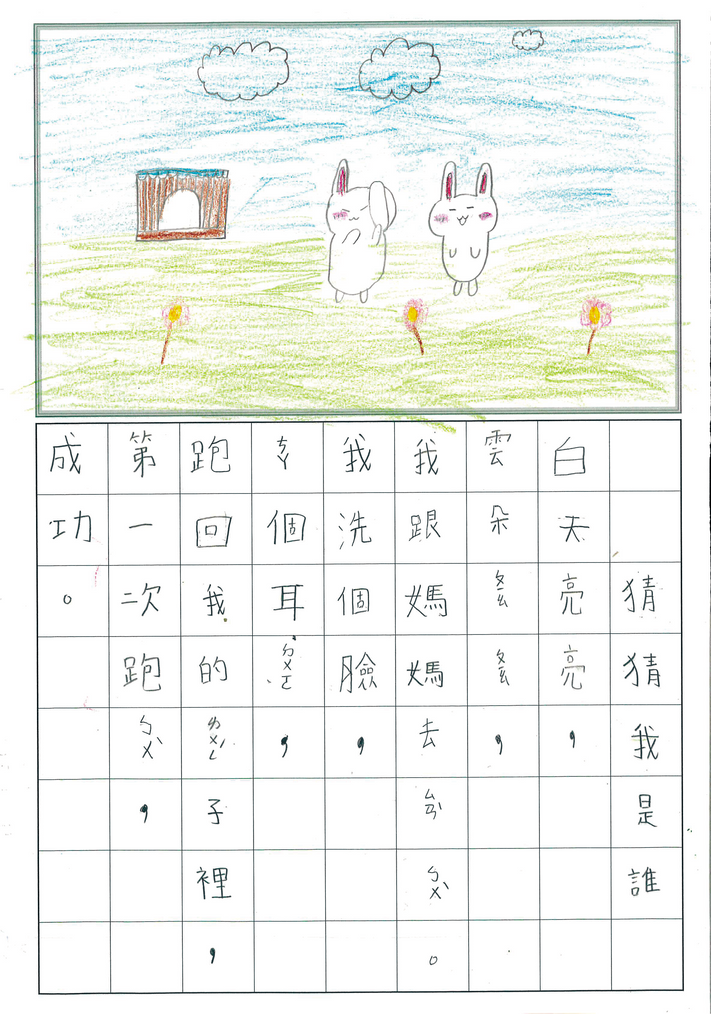 猜猜我是誰
白天亮亮，
雲朵ㄆㄧㄠㄆㄧㄠ，
我跟媽媽去ㄙㄢˋㄅㄨˋ。
我洗個臉，
ㄘㄚ個耳˙ㄉㄨㄛ，
跑回我的ㄌㄨㄥˊ子裡，
第一次跑ㄅㄨˋ，
成功。